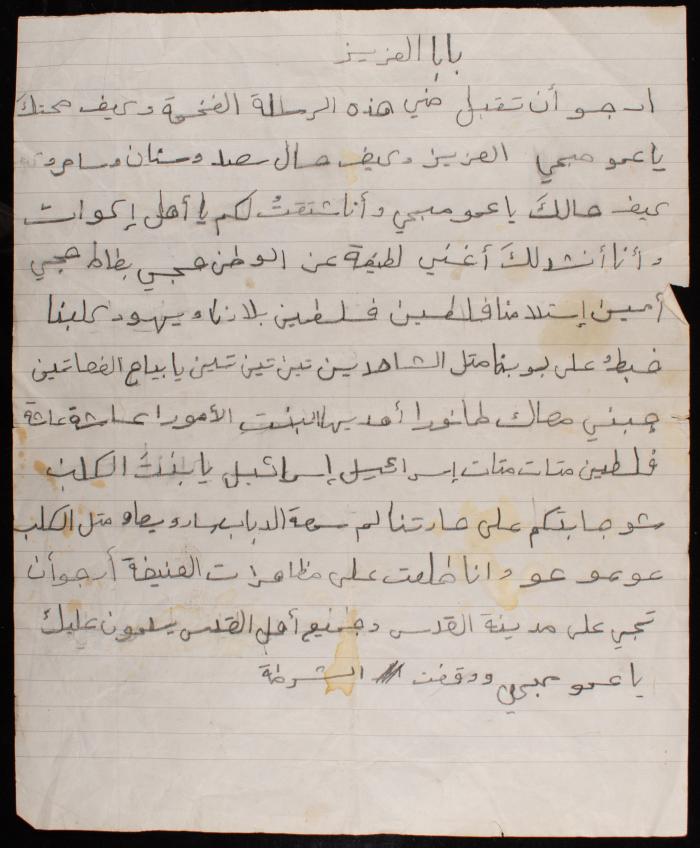 بابا العزيز
ارجو أن تقبل مني هذه الرسالة الفخمة وكيف صحتك
يا عمو صبحي العزيز وكيف حال سعد وسنان وسامر
كيف حالكَ يا عمو صبحي وأنا شتقتُ لكم يا أهلي إكوات
وأنا أنشد لكَ أغني لطيفة عن الوطن صبحي بطاط صبحي
أمين إستلامنا فلسطين فلسطين بلادنا ويهود كلبنا
على مثل الشاهدين تين تين تين يا بياع الفصاتين
جبني معاك أهديها البنت الأمورا عاشة عاشة
فلسطين متات متات إسرائيل إسرائيل يا بنتُ الكلب
شو جابتكم على حارتنا لم سمعة الدباب مثل الكلب
عو عو عو وانا طلعت على مظاهرات العنيفة أرجو أن
تجي على مدينة القدس وجميع أهل القدس يسلمون عليك
يا عمو صبحي ووقفت الشرطة